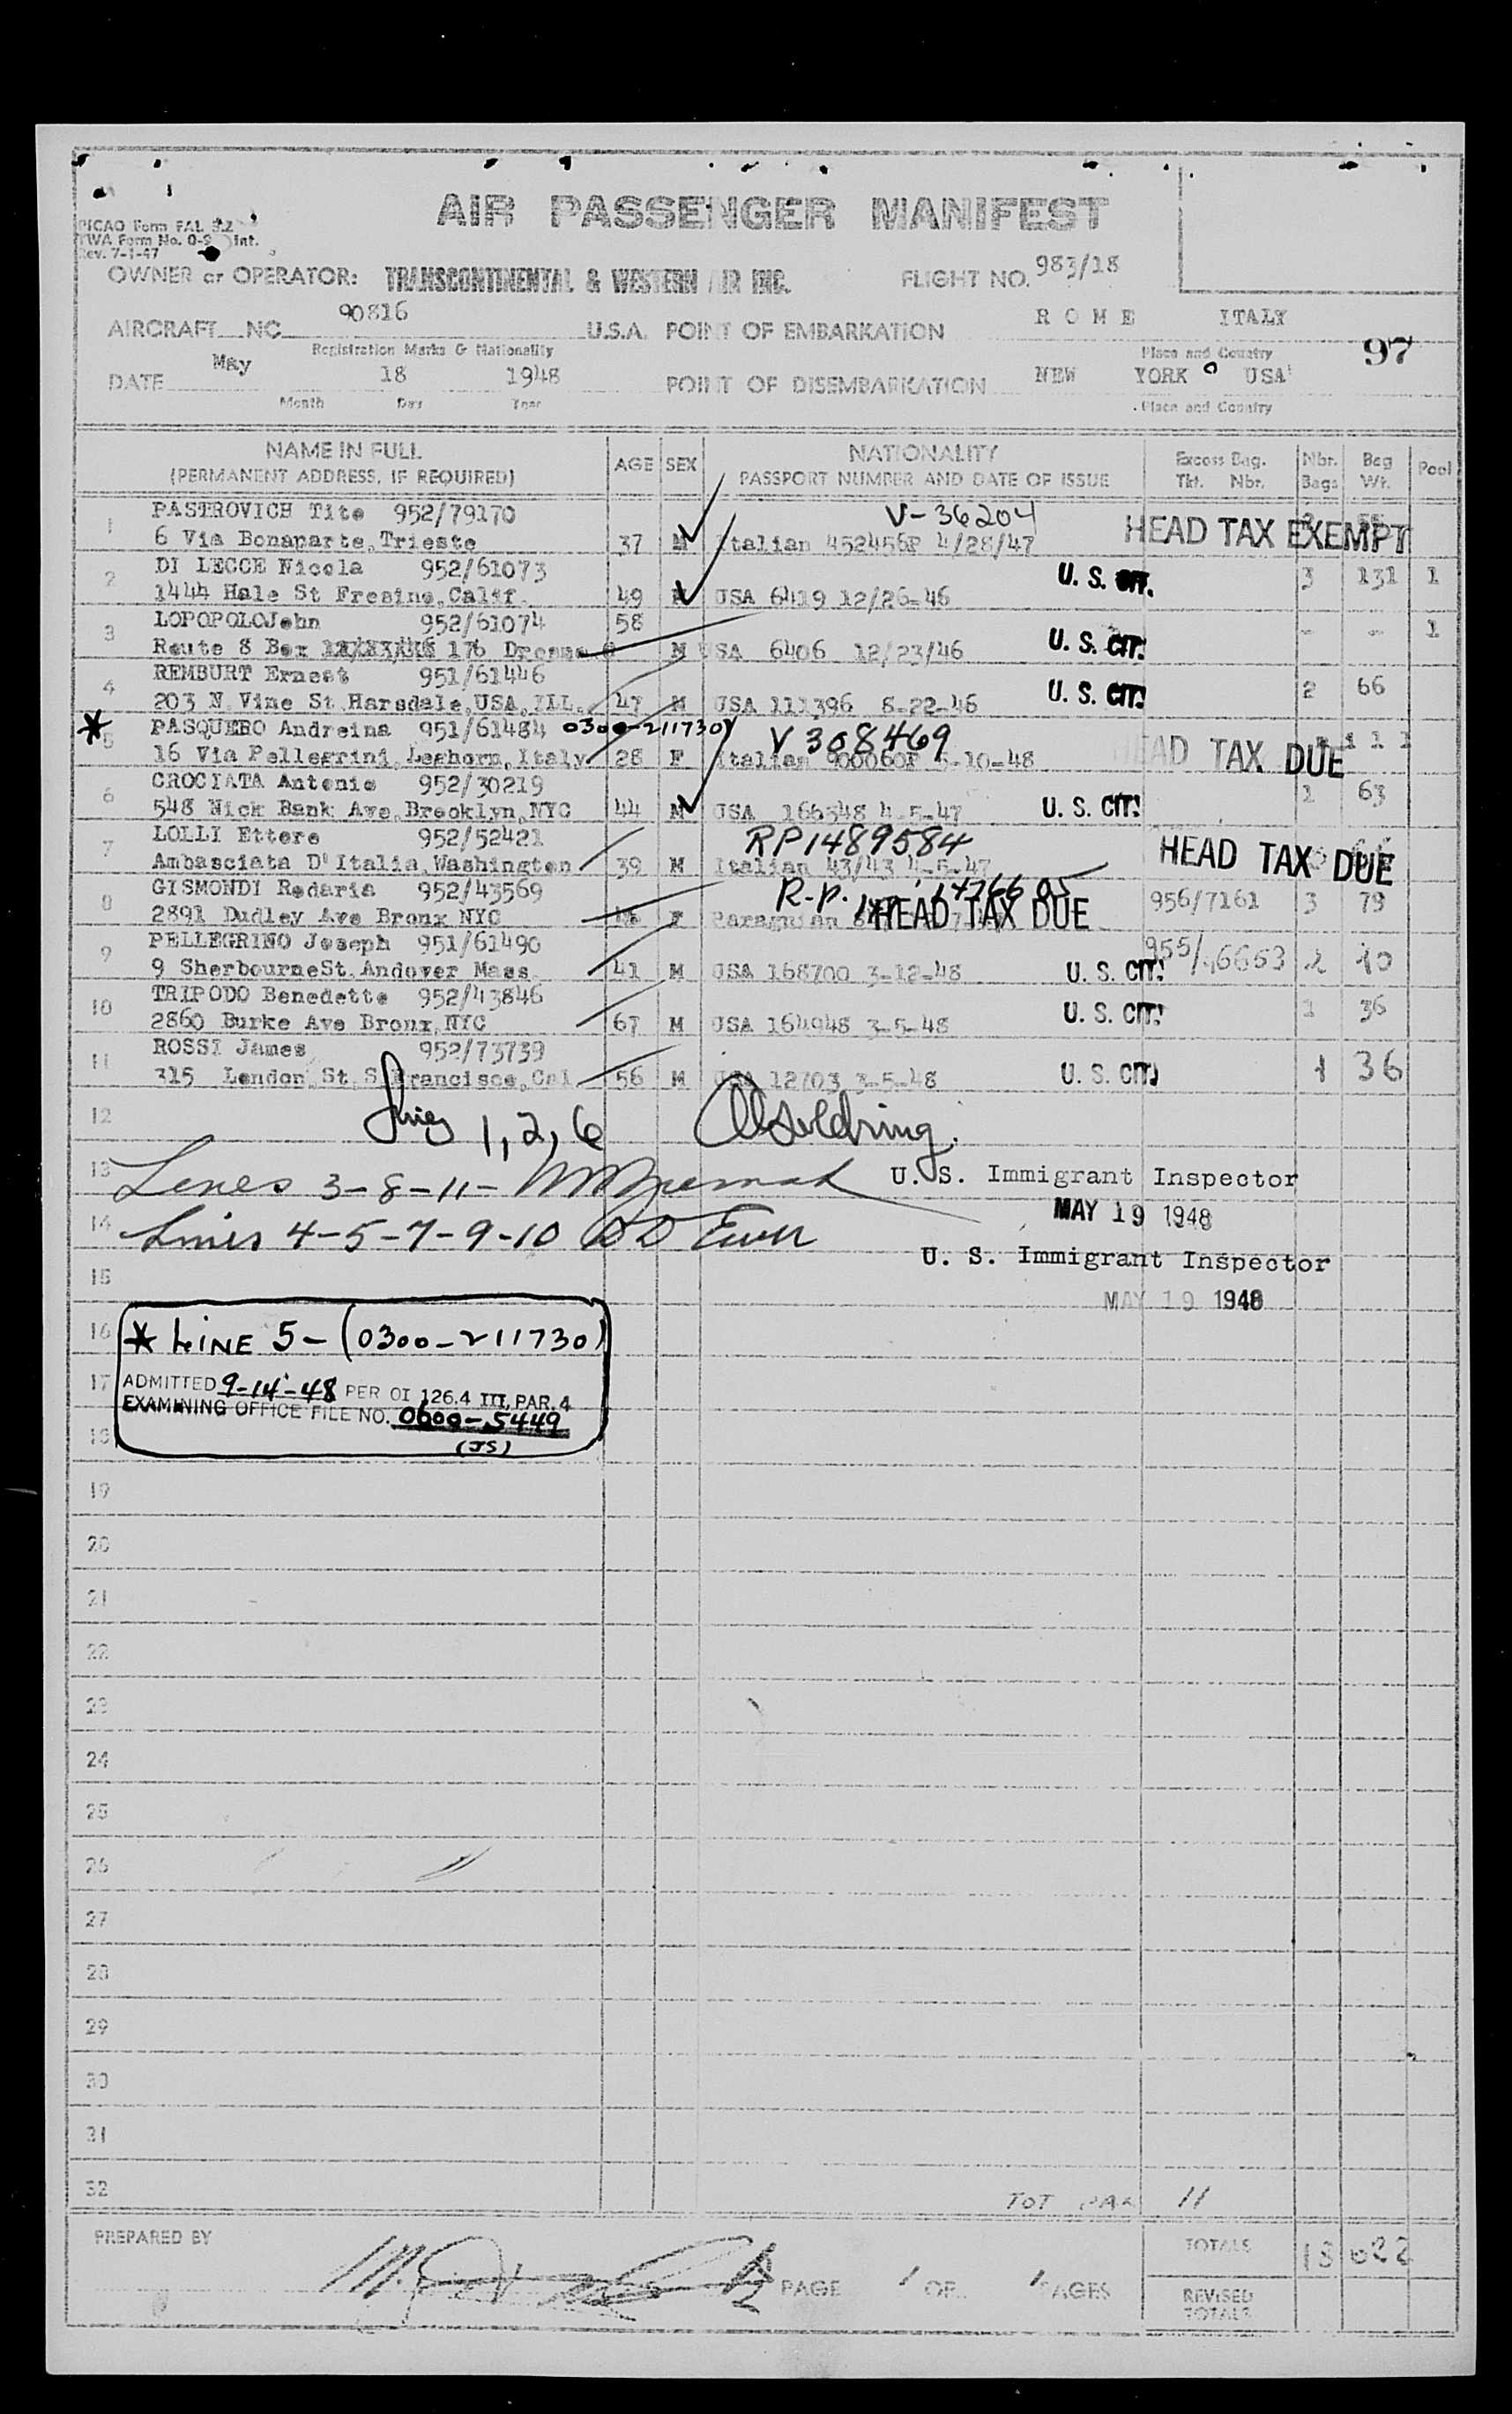 AIR PASSENGER MANIFEST
PICAO Form FAL
TWA Form No. Int.
Rev. 7-1-47
OWNER or OPERATOR: TRANSCONTINENTAL & WESTERN AIR INC. FLIGHT NO. 983/18
AIRCRAFT NC 90816 U.S.A. POINT OF EMBARKATION ROME ITALY
Registration Marks & Nationality Place and Country 97
DATE May 18 1948 POINT OF DISEMBARKATION NEW YORK USA
Month Day Year Place and Country
NAME IN FULL AGE SEX NATIONALITY Excess Bag. Nbr. Bag Pool
(PERMANENT ADDRESS, IF REQUIRED) PASSPORT NUMBER AND DATE OF ISSUE Tkt. Nbr. Bags Wt.
1 PASTROVICH Tito 952/79170 V-36204 HEAD TAX EXEMPT
6 Via Bonaparte, Trieste 37 M Italian 452456P 4/28/47
2 DI LECCE Nicola 952/61073 U. S. CIT. 3 131 1
1444 Hale St Fresino, Calif. 49 USA 6419 12/26-46
3 LOPOPOLOJohn 952/61074 58 U. S. CIT. - - 1
Route 8 Box 176 M USA 6406 12/23/46
4 REMBURT Ernest 951/61446 U. S. CIT. 2 66
203 N Vine St Harsdale, USA, ILL. 47 M USA 111396 8-22-46
* 5 PASQUERO Andreina 951/61484 0300-211730 V 308469 HEAD TAX DUE
16 Via Pellegrini, Leghorn, Italy 28 F Italian 900060P 5-10-48
6 CROCIATA Antonio 952/30219 U. S. CIT. 1 63
548 Nick Bank Ave, Brooklyn, NYC 44 M USA 166348 4-5-47
7 LOLLI Ettore 952/52421 RP1489584 HEAD TAX DUE
Ambasciata D'Italia, Washington 39 M Italian 43/43 4-5-47
8 GISMONDI Rodaria 952/43569 R.P. HEAD TAX DUE 956/7161 3 79
2891 Dudley Ave Bronx NYC F Paraguian
9 PELLEGRINO Joseph 951/61490 U. S. CIT. 955/
9 SherbourneSt. Andover Mass. 41 M USA 168700 3-12-48
10 TRIPODO Benedetto 952/43846 U. S. CIT. 1 36
2860 Burke Ave Bronx, NYC 67 M USA 164948 3-5-48
11 ROSSI James 952/73739 U. S. CIT. 1 36
315 London St S.Francisco, Cal 56 M USA 12703 3-5-48
12 Lines 1, 2, 6
13 Lines 3-8-11-
U. S. Immigrant Inspector
MAY 19 1948
14 Lines 4-5-7-9-10
U. S. Immigrant Inspector
15
MAY 19 1948
16 * LINE 5 - (0300-211730)
17 ADMITTED 9-14-48 PER OI 126.4 III, PAR. 4
EXAMINING OFFICE FILE NO. 0600-5449
18 (JS)
19
20
21
22
23
24
25
26
27
28
29
30
31
32
TOT PAX 11
PREPARED BY PAGE 1 OF 1 PAGES TOTALS
REVISED TOTALS